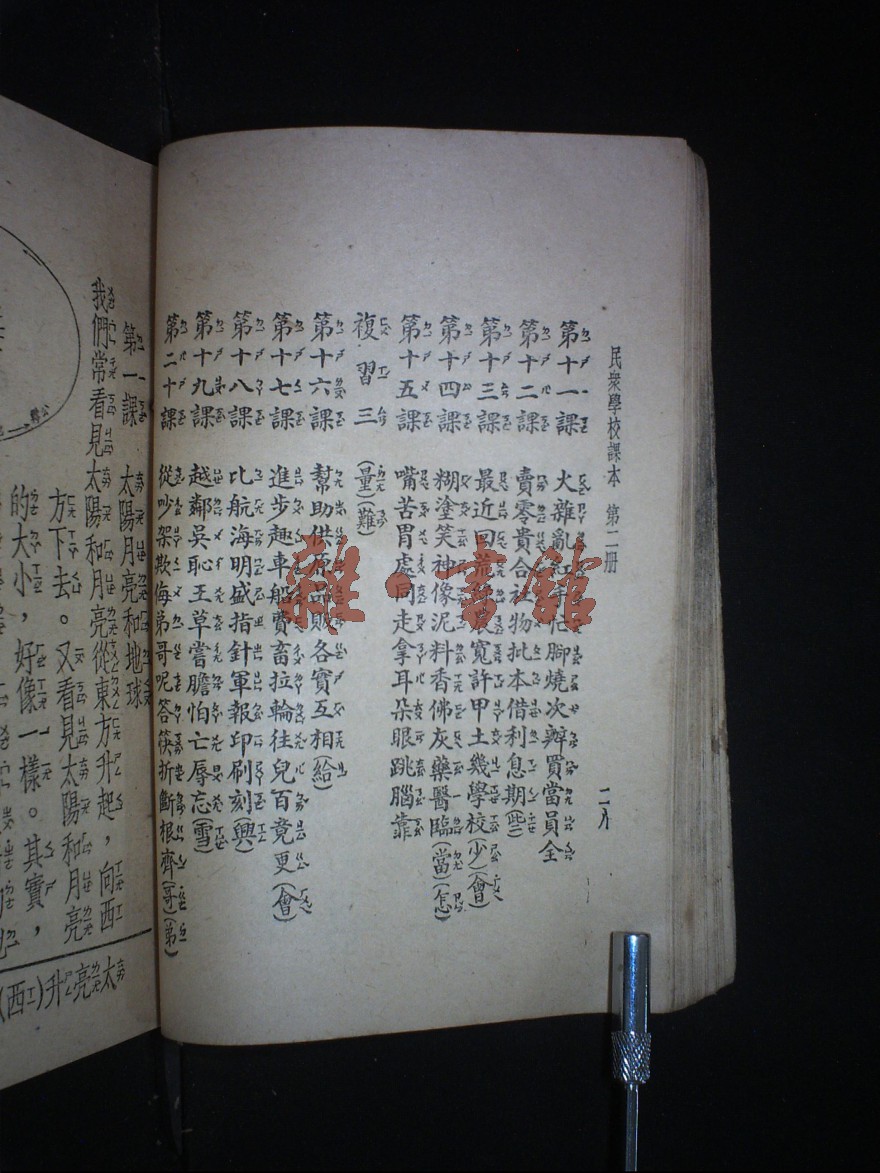 民衆學校課本 第二册
二八
第十一課 火雜亂紅手忙腳燒次辦買當員全
第十二課 賣零貴合社物批本借利息期(些)
第十三課 最近回荒農寬許甲土幾學校(少)(會)
第十四課 糊塗笑神像泥料香佛灰藥醫臨(當)(怎)
第十五課 嘴苦胃處同走拿耳朵眼跳腦靠
複習三 (量)(難)
第十六課 幫助供原品販各實互相(給)
第十七課 進步趣車船費畜拉輪往兒百竟更(會)
第十八課 比航海明盛指針軍報印刷刻(興)
第十九課 越鄰吳恥王草嘗膽怕亡辱忘(雪)
第二十課 從吵架欺侮弟哥呢答筷折斷根齊(哥)(弟)
第一課 太陽月亮和地球
我們常看見太陽和月亮從東方升起，向西
方下去。又看見太陽和月亮
的大小，好像一樣。其實，
太亮升(西)
雜·書館